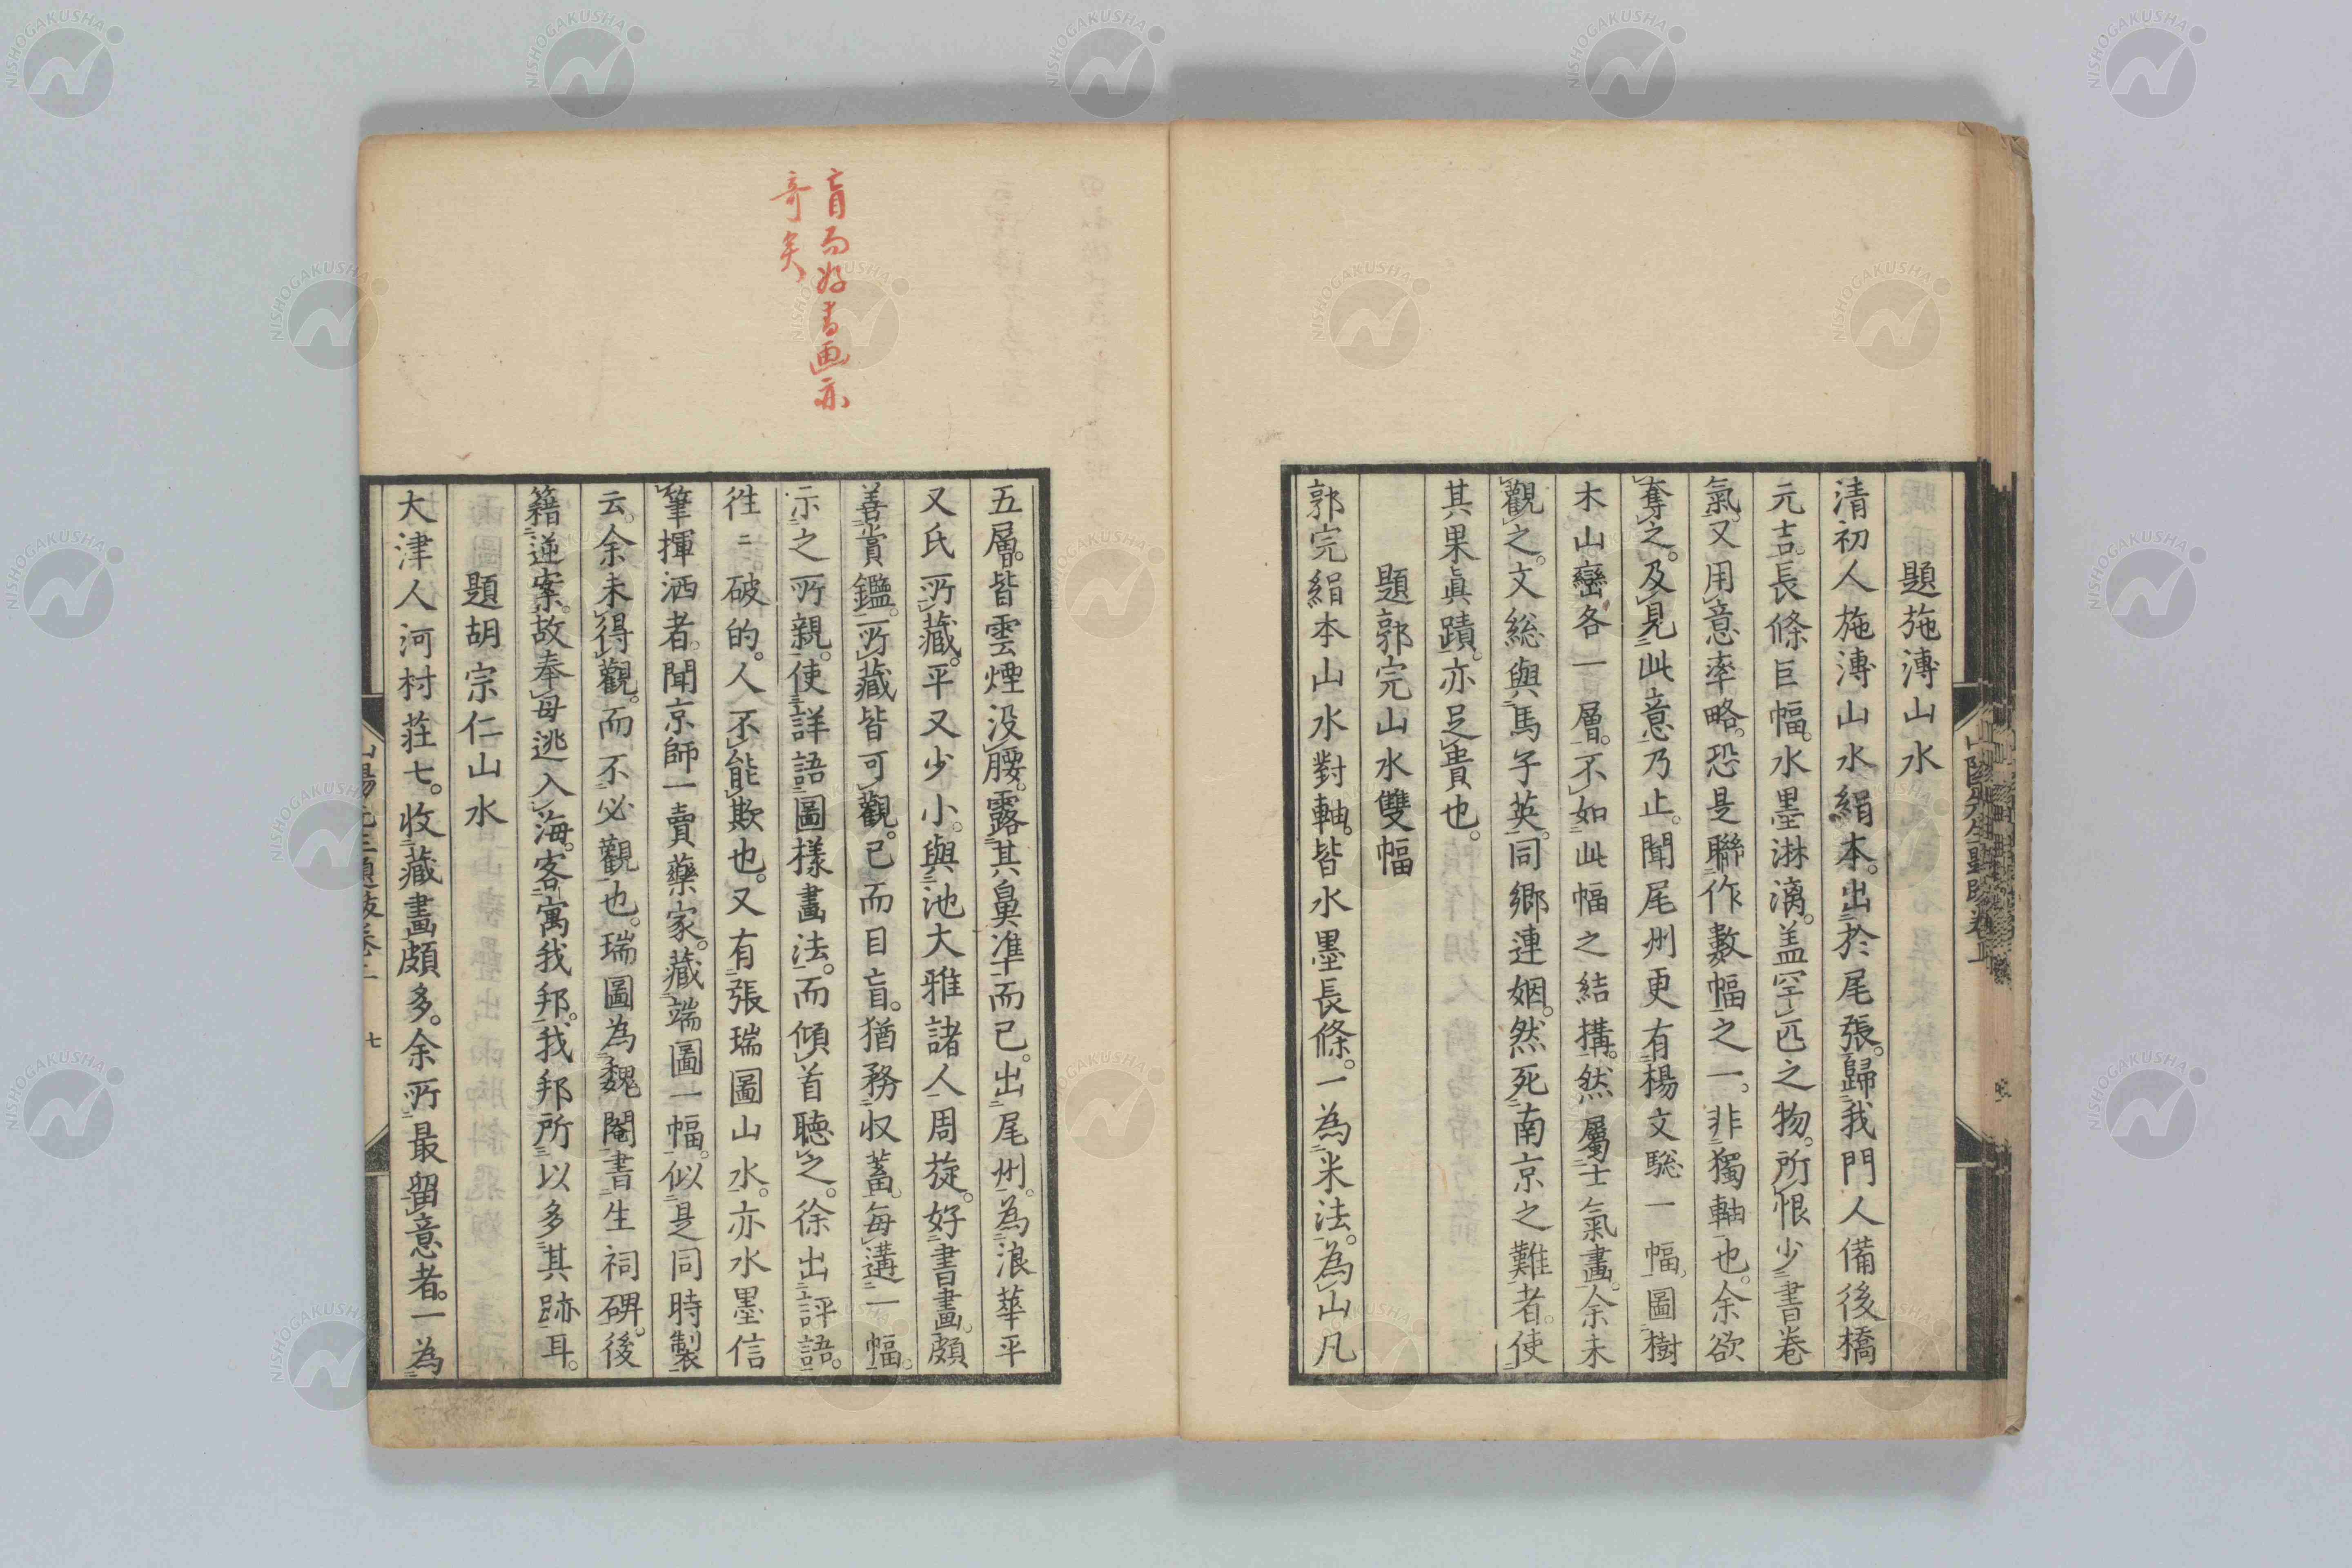 題施溥山水
清初人施溥山水絹本。出於尾張。歸我門人備後橋
元吉。長條巨幅。水墨淋漓。盖罕匹之物。所恨少書卷
氣。又用意率略。恐是聯作數幅之一。非獨軸也。余欲
奪之。及見此意乃止。聞尾州更有楊文驄一幅。圖樹
木山巒各一層。不如此幅之結搆。然屬士氣畫。余未
觀之。文総與馬子英。同鄉連姻。然死南京之難者。使
其果眞蹟。亦足貴也。
題郭完山水雙幅
郭完絹本山水對軸。皆水墨長條。一為米法。為山凡
五層。皆雲煙没腰。露其鼻準而已。出尾州。為浪華平
又氏所藏。平又少小。與池大雅諸人周旋。好書畫。頗
善賞鑑。所藏皆可觀。已而目盲。猶務収蓄。每遘一幅。
示之所親。使詳語圖樣畫法。而傾首聽之。徐出評語。
徃〻破的。人不能欺也。又有張瑞圖山水。亦水墨信
筆揮洒者。聞京師一賣藥家。藏端圖一幅。似是同時製
云。余未得觀。而不必觀也。瑞圖為魏閹書生祠碑。後
籍逆案。故奉母逃入海。客寓我邦。我邦所以多其跡耳。
題胡宗仁山水
大津人河村荘七。收藏畫頗多。余所最留意者。一為
盲而好書画亦
奇矣
七
NISHOGAKUSHA